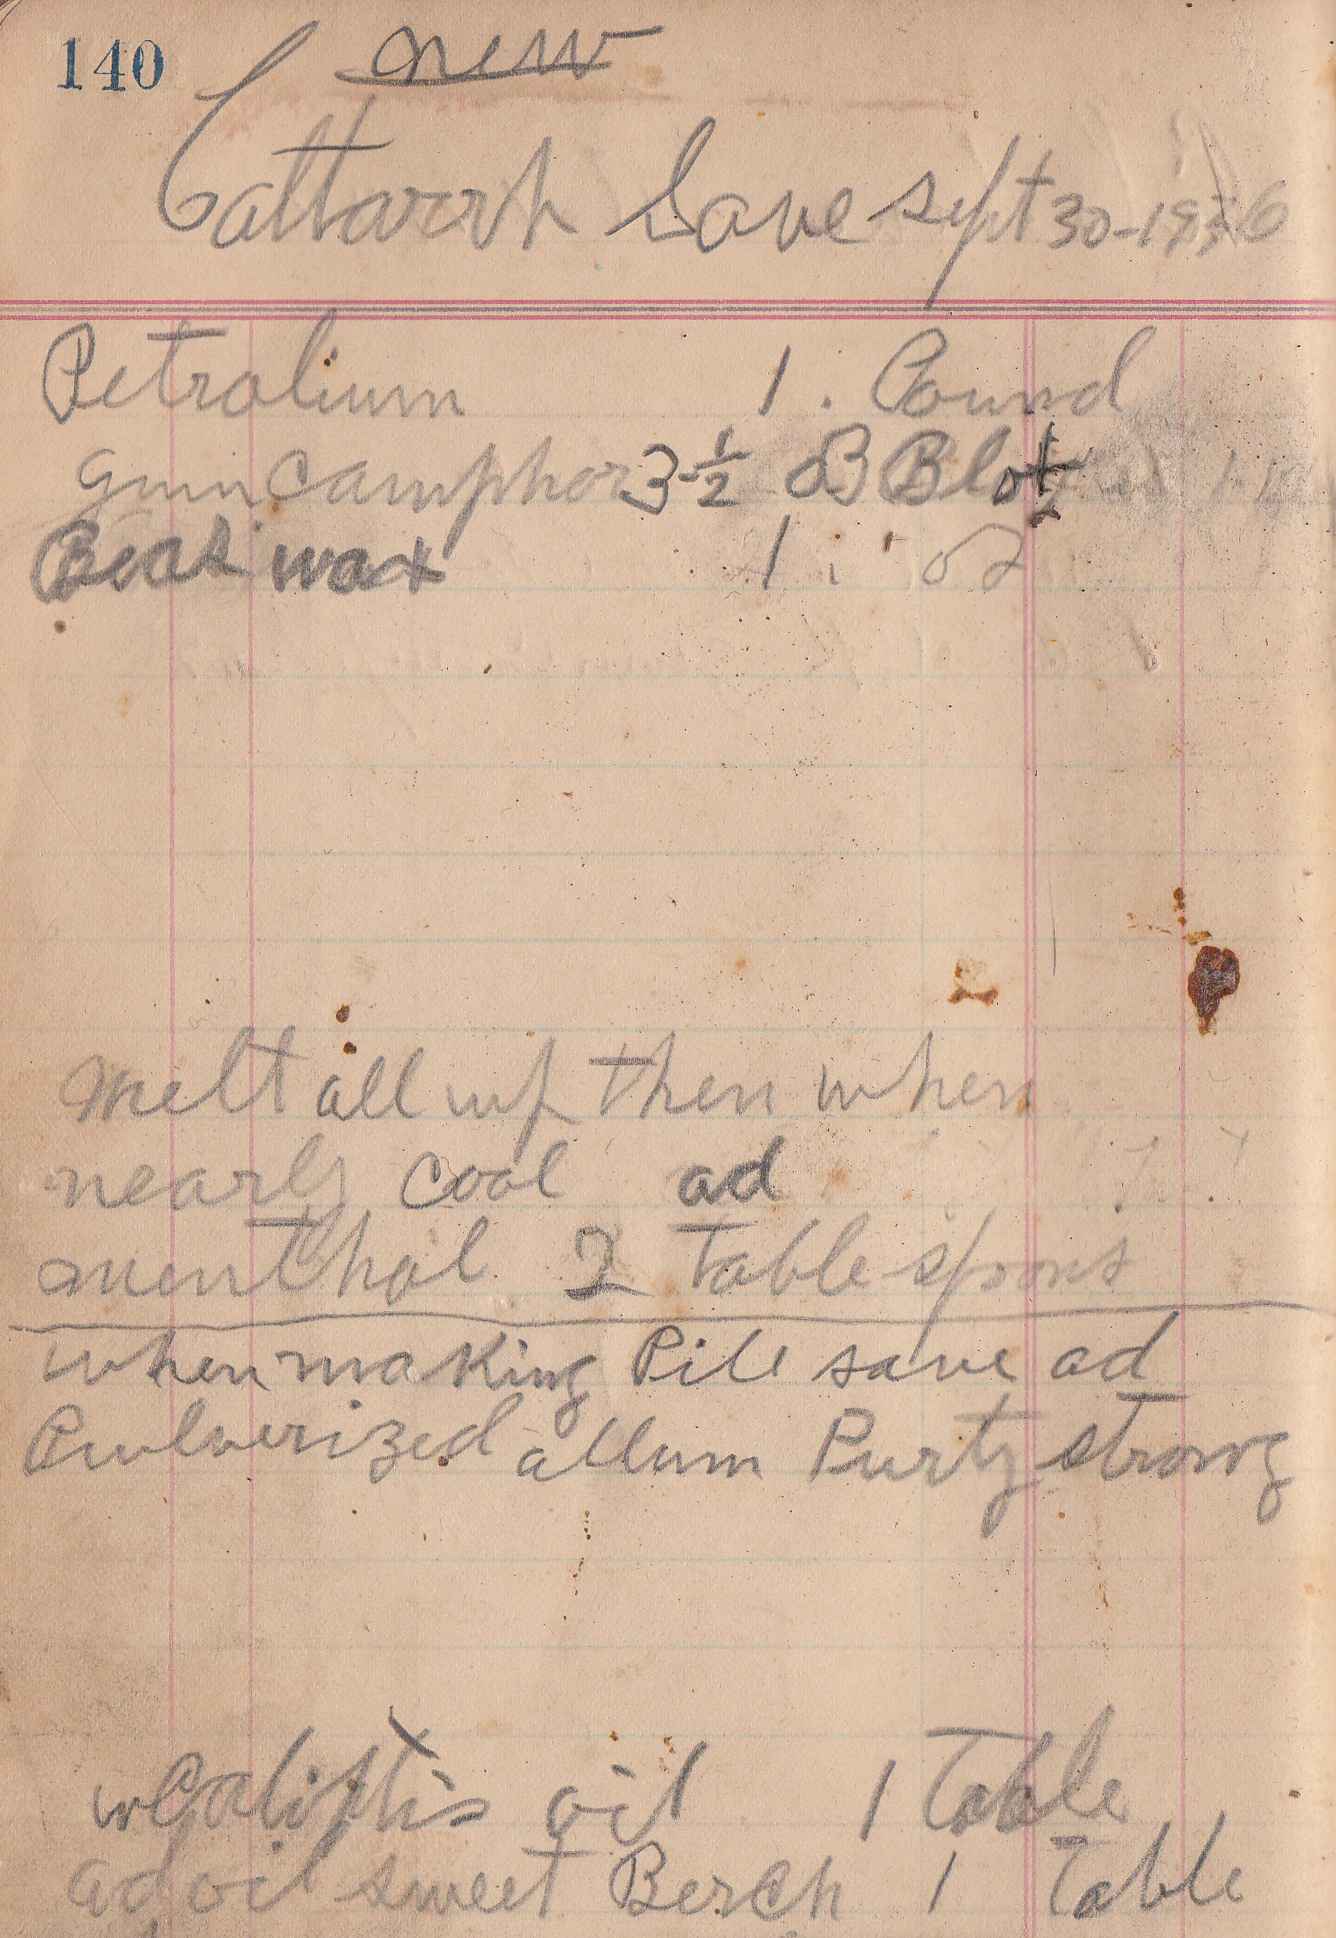 140 new
Cattarrh Save sept 30-1936
Petrolium 1. Pound
Gum Camphor 3-1/2 B Blot
Beas wax 1. oz
melt all up then when
nearly cool ad
menthol 2 Table spoons
when making Pile save ad
Pulverized allum Purty strong
Caliptis oil 1 Table
ad oil sweet Berch 1 Table